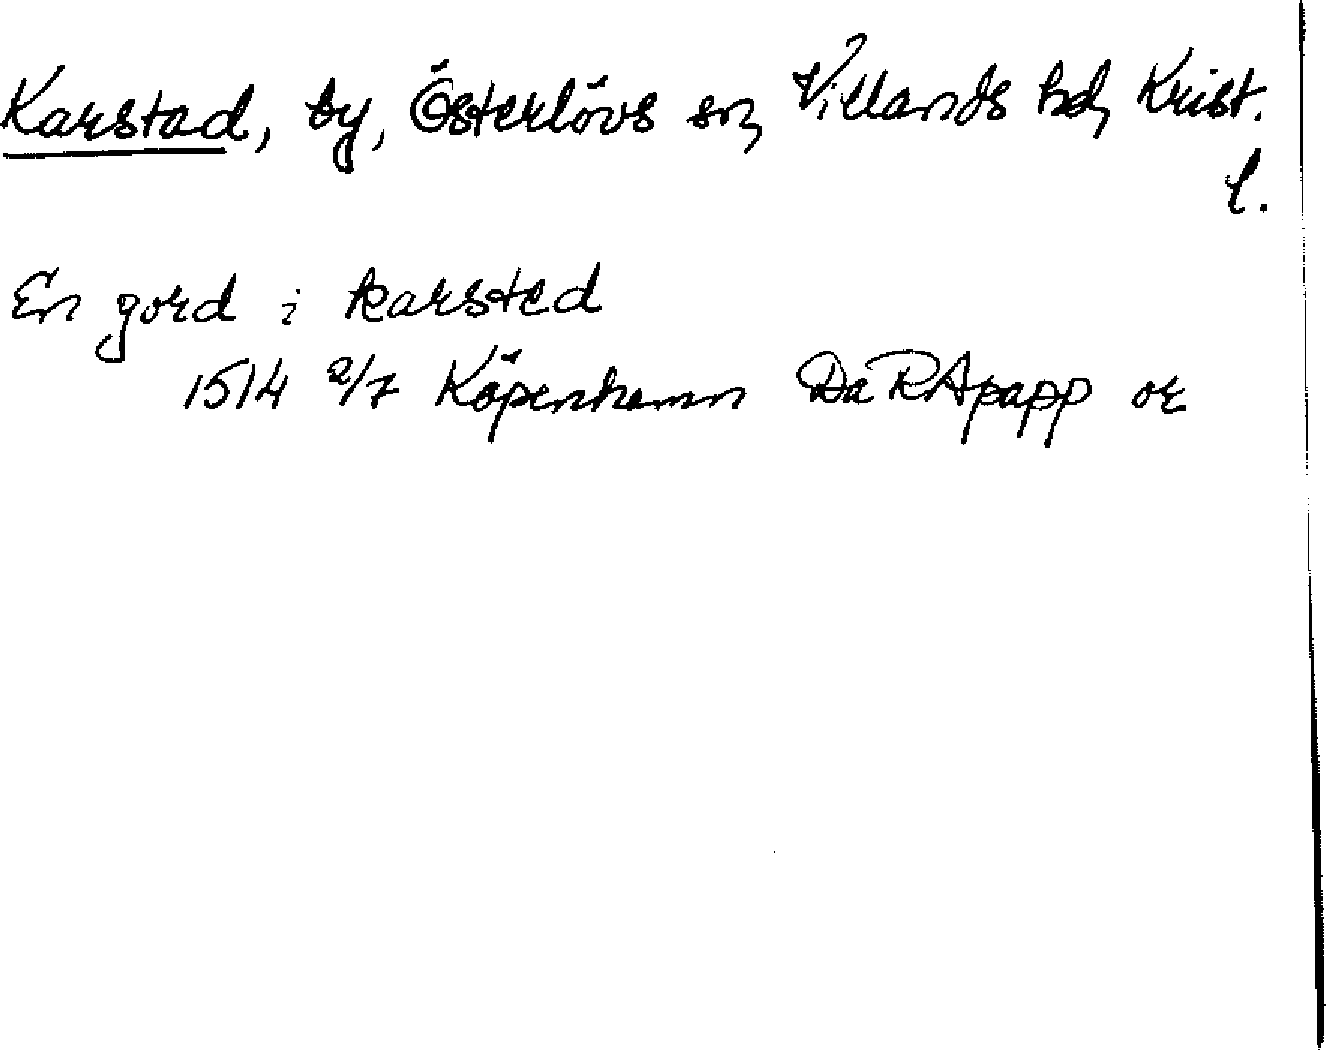 Karstad, by, Österlövs sn, Villands hd, Krist.
l.
En gord i karsted
1514 2/7 Köpenhamn DaRApapp or